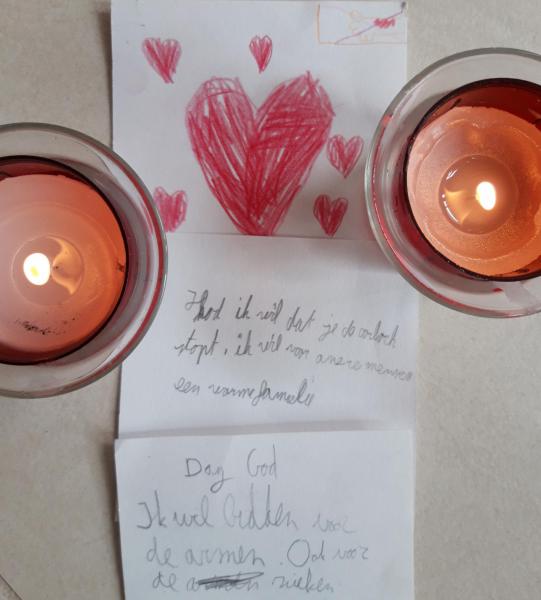 God ik wil dat je de oorloch
stopt, ik wil voor andere mensen
een warme familie
Dag God
Ik wil bidden voor
de armen. Ook voor
de zieken